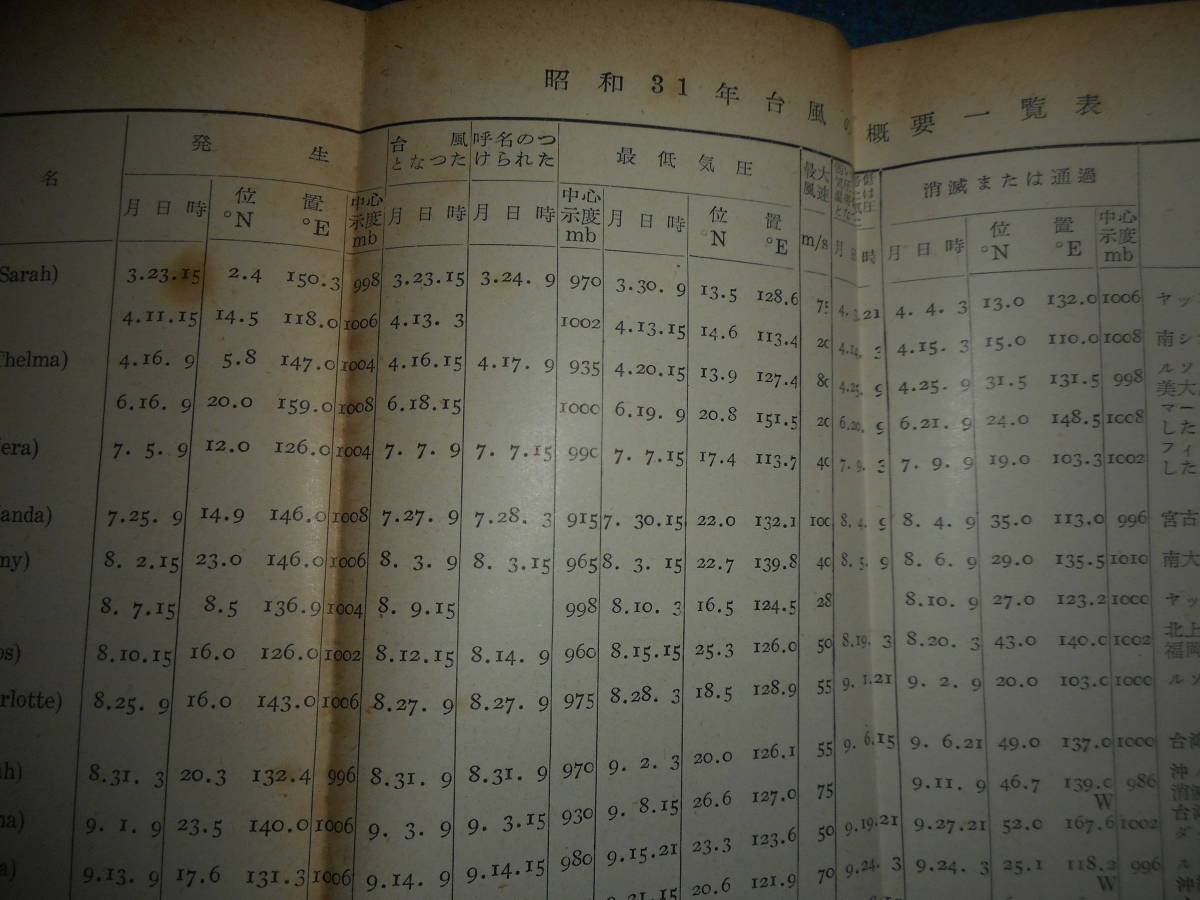 昭和31年台風の概要一覧表
名 発生 台風となつた 呼名のつけられた 最低気圧 最大風速 消滅または通過
月日時 位置 °N °E 中心示度 mb 月日時 月日時 中心示度 mb 月日時 位置 °N °E m/s 月日時 月日時 位置 °N °E 中心示度 mb
Sarah) 3.23.15 2.4 150.3 998 3.23.15 3.24. 9 970 3.30. 9 13.5 128.6 75 21 4. 4. 3 13.0 132.0 1006 ヤッ
4.11.15 14.5 118.0 1006 4.13. 3 1002 4.13.15 14.6 113.4 20 4.14. 3 4.15. 3 15.0 110.0 1008 南シ
Thelma) 4.16. 9 5.8 147.0 1004 4.16.15 4.17. 9 935 4.20.15 13.9 127.4 80 4.25. 9 4.25. 9 31.5 131.5 998 ルソ
美大
6.16. 9 20.0 159.0 1008 6.18.15 1000 6.19. 9 20.8 151.5 20 6.20. 9 6.21. 9 24.0 148.5 1008 マー
した
era) 7. 5. 9 12.0 126.0 1004 7. 7. 9 7. 7.15 990 7. 7.15 17.4 113.7 40 7. 9. 3 7. 9. 9 19.0 103.3 1002 フィ
した
anda) 7.25. 9 14.9 146.0 1008 7.27. 9 7.28. 3 915 7. 30.15 22.0 132.1 100 8. 4. 9 8. 4. 9 35.0 113.0 996 宮古
ny) 8. 2.15 23.0 146.0 1006 8. 3. 9 8. 3.15 965 8. 3. 15 22.7 139.8 40 8. 5. 9 8. 6. 9 29.0 135.5 1010 南大
8. 7.15 8.5 136.9 1004 8. 9.15 998 8.10. 3 16.5 124.5 28 8.10. 9 27.0 123.2 1000 ヤッ
os) 8.10.15 16.0 126.0 1002 8.12.15 8.14. 9 960 8.15.15 25.3 126.0 50 8.19. 3 8.20. 3 43.0 140.0 1002 北上
福岡
rlotte) 8.25. 9 16.0 143.0 1006 8.27. 9 8.27. 9 975 8.28. 3 18.5 128.9 55 9. 1.21 9. 2. 9 20.0 103.0 1000 ルソ
ah) 8.31. 3 20.3 132.4 996 8.31. 9 8.31. 9 970 9. 2. 3 20.0 126.1 55 9. 6.15 9. 6.21 49.0 137.0 1000 台湾
na) 9. 1. 9 23.5 140.0 1006 9. 3. 9 9. 3.15 930 9. 8.15 26.6 127.0 75 9.11. 9 46.7 139.0 986 沖
消滅
a) 9.13. 9 17.6 131.3 1006 9.14. 9 9.14.15 980 9.15.21 23.3 123.6 50 9.19.21 9.27.21 52.0 W 167.6 1002 台湾
ダ
21.15 20.6 121.9 70 9.24. 3 9.24. 3 25.1 118.2 996 ル
W 沖